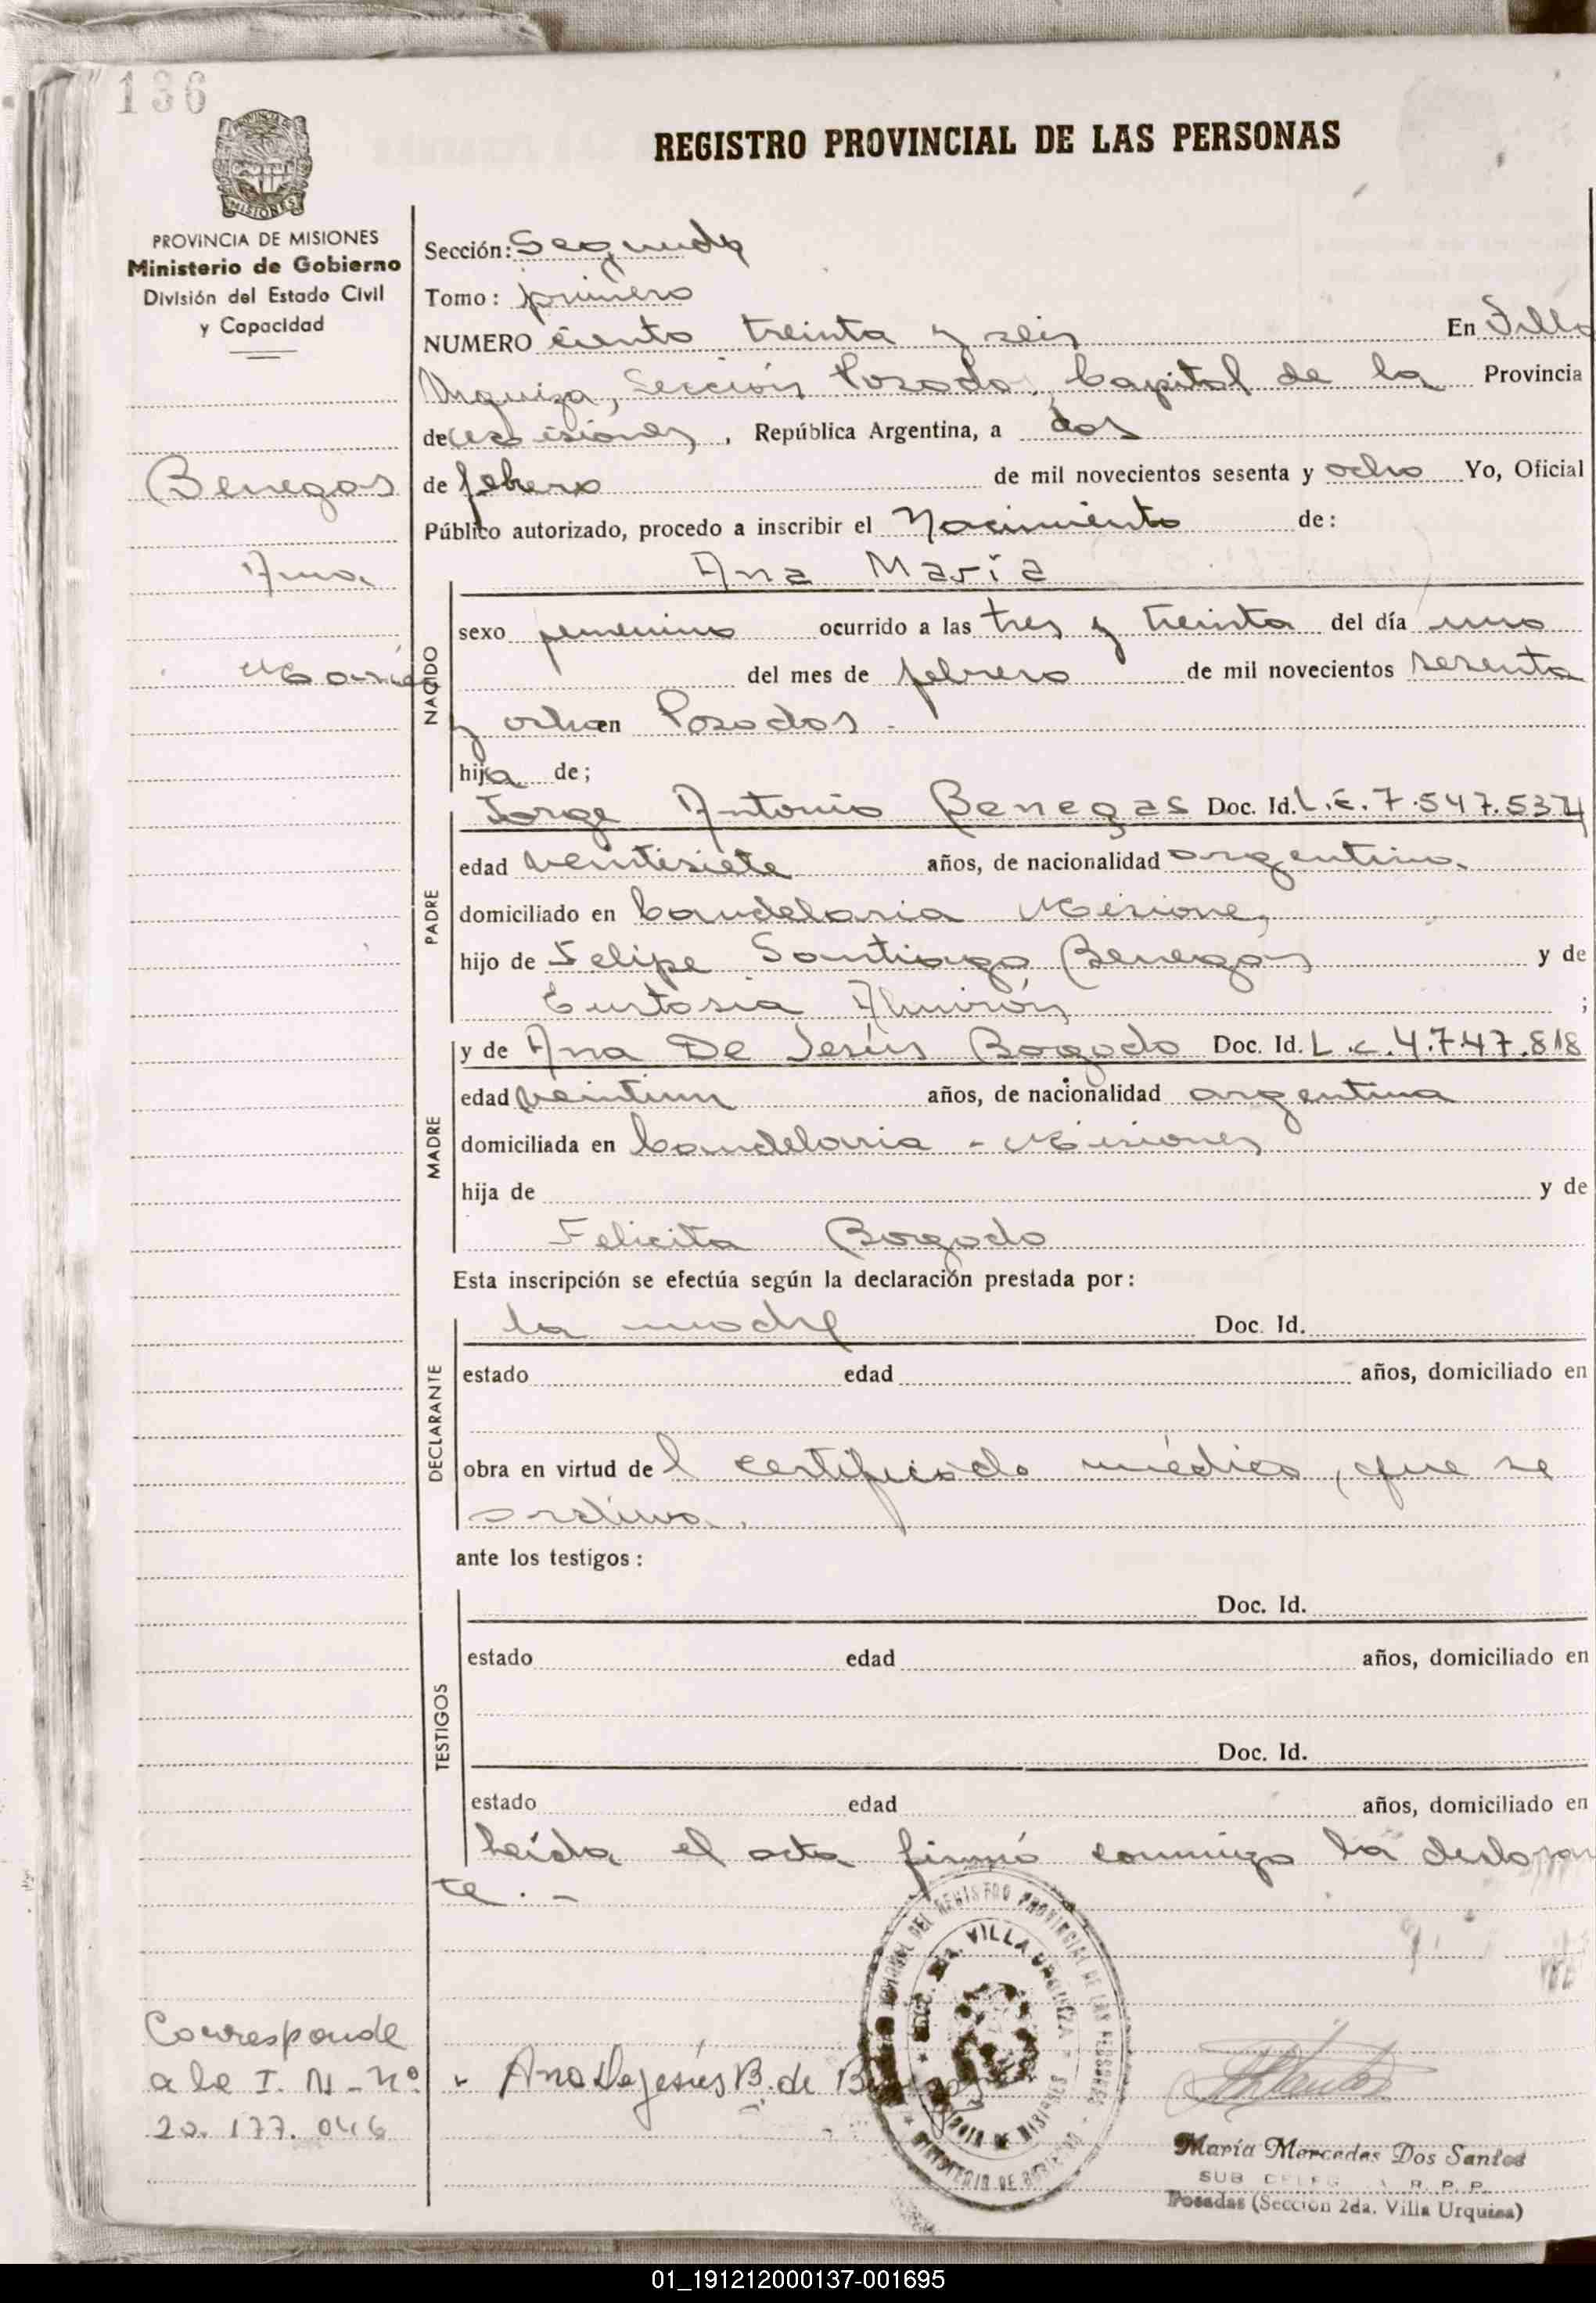 136
REGISTRO PROVINCIAL DE LAS PERSONAS
MISIONES
PROVINCIA DE MISIONES
Ministerio de Gobierno
División del Estado Civil
y Capacidad
Benegas
Ana
María
Sección: Segunda
Tomo: primero
NUMERO ciento treinta y seis En Villa
Urquiza, Sección Posadas, Capital de la Provincia
de Misiones, República Argentina, a dos
de febrero de mil novecientos sesenta y ocho Yo, Oficial
Público autorizado, procedo a inscribir el Nacimiento de:
Ana María
NACIDO
sexo femenino ocurrido a las tres y treinta del día uno
del mes de febrero de mil novecientos sesenta
y ocho en Posadas.-
hija de;
PADRE
Jorge Antonio Benegas Doc. Id. L.E. 7.547.534
edad veintisiete años, de nacionalidad argentino.
domiciliado en Candelaria Misiones
hijo de Felipe Santiago Benegas y de
Eustasia Almirón ;
MADRE
y de Ana De Jesús Bogado Doc. Id. L.c. 4.747.818
edad veintiun años, de nacionalidad argentina
domiciliada en Candelaria - Misiones
hija de y de
Felicita Bogado
Esta inscripción se efectúa según la declaración prestada por:
DECLARANTE
la madre Doc. Id.
estado edad años, domiciliado en
obra en virtud del certificado médico, que se
archiva.
ante los testigos:
TESTIGOS
Doc. Id.
estado edad años, domiciliado en
Doc. Id.
estado edad años, domiciliado en
Leída el acta firmó conmigo la declaran
te.-
DEL REGISTRO PROVINCIAL DE LAS PERSONAS
VILLA URQUIZA
MINISTERIO DE GOBIERNO
Corresponde
a la I. N - Nº
20.177.046
Ana De Jesús B. de
María Mercedes Dos Santos
SUB R. P. P.
Posadas (Sección 2da. Villa Urquiza)
01_191212000137-001695